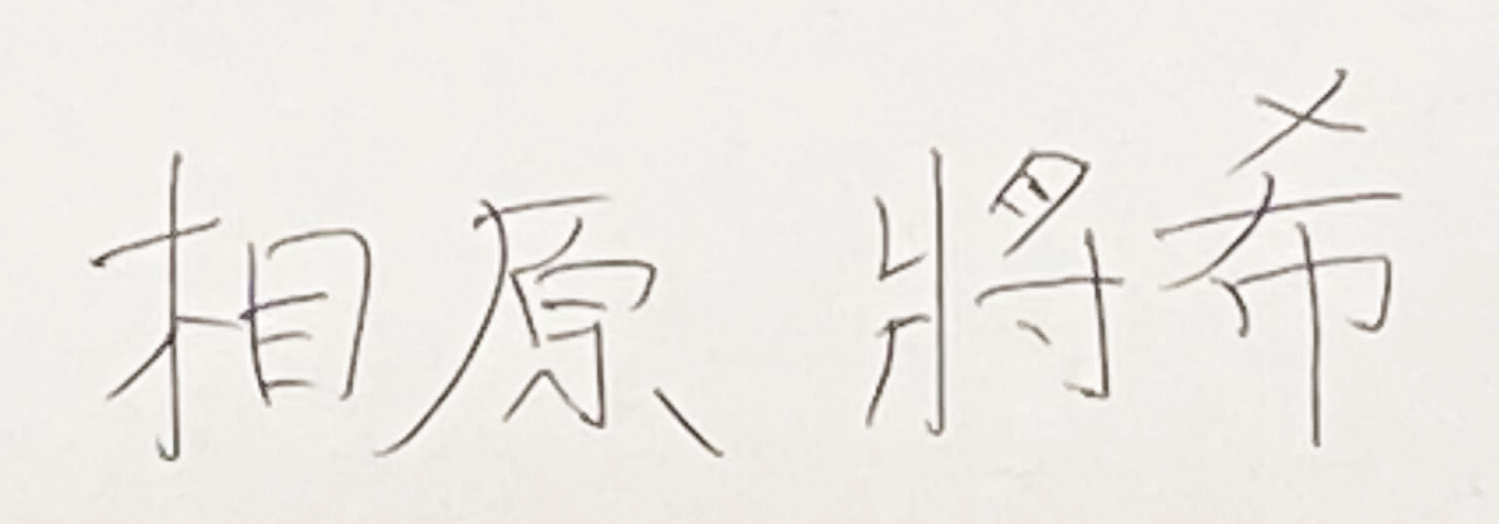 相原 將希